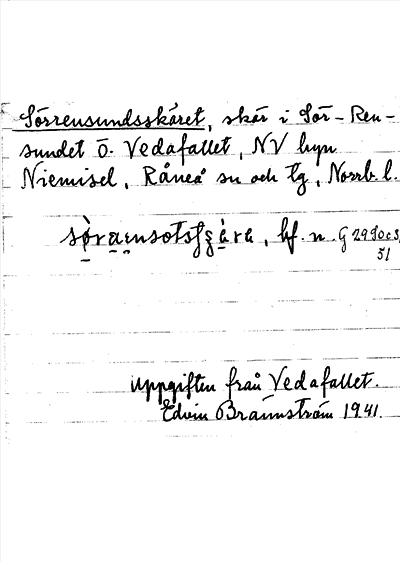 Sörrensundsskäret, skär i Sör-Ren-
sundet Ö. Vedafallet, NV byn
Niemisel, Råneå sn och tg, Norrb. l.
bf. n. G 29
51
Uppgiften från Vedafallet.
Edvin Brännström 1941.